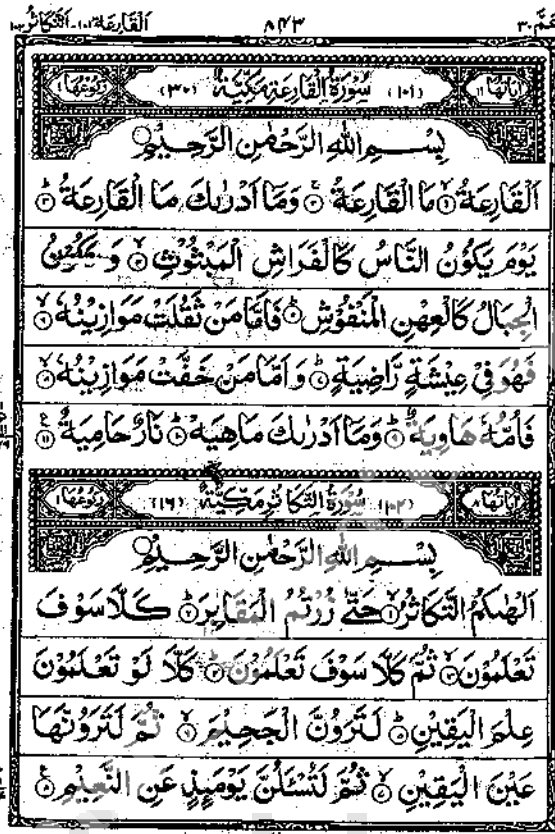 عمّ ٣٠ ٨٤٣ اَلْقَارِعَة ١٠١-اَلتَّكَاثُر ١٠٢
اٰيَاتُهَا ١١ (١٠١) سُوْرَةُ الْقَارِعَةِ مَكِّيَّةٌ (٣٠) رُكُوْعُهَا ١
بِسْــمِ اللهِ الرَّحْمٰنِ الرَّحِيْمِ
اَلْقَارِعَةُ ۙ﴿١﴾ مَا الْقَارِعَةُ ۚ﴿٢﴾ وَمَاۤ اَدْرٰىكَ مَا الْقَارِعَةُ ؕ﴿٣﴾
يَوْمَ يَكُوْنُ النَّاسُ كَالْفَرَاشِ الْمَبْثُوْثِ ۙ﴿٤﴾ وَتَكُوْنُ
الْجِبَالُ كَالْعِهْنِ الْمَنْفُوْشِ ؕ﴿٥﴾ فَاَمَّا مَنْ ثَقُلَتْ مَوَازِيْنُهٗ ۙ﴿٦﴾
فَهُوَ فِيْ عِيْشَةٍ رَّاضِيَةٍ ؕ﴿٧﴾ وَاَمَّا مَنْ خَفَّتْ مَوَازِيْنُهٗ ۙ﴿٨﴾
فَاُمُّهٗ هَاوِيَةٌ ؕ﴿٩﴾ وَمَاۤ اَدْرٰىكَ مَاهِيَهْ ؕ﴿١٠﴾ نَارٌ حَامِيَةٌ ﴿١١﴾
اٰيَاتُهَا ٨ (١٠٢) سُوْرَةُ التَّكَاثُرِ مَكِّيَّةٌ (١٦) رُكُوْعُهَا ١
بِسْــمِ اللهِ الرَّحْمٰنِ الرَّحِيْمِ
اَلْهٰىكُمُ التَّكَاثُرُ ۙ﴿١﴾ حَتّٰى زُرْتُمُ الْمَقَابِرَ ؕ﴿٢﴾ كَلَّا سَوْفَ
تَعْلَمُوْنَ ۙ﴿٣﴾ ثُمَّ كَلَّا سَوْفَ تَعْلَمُوْنَ ؕ﴿٤﴾ كَلَّا لَوْ تَعْلَمُوْنَ
عِلْمَ الْيَقِيْنِ ؕ﴿٥﴾ لَتَرَوُنَّ الْجَحِيْمَ ۙ﴿٦﴾ ثُمَّ لَتَرَوُنَّهَا
عَيْنَ الْيَقِيْنِ ۙ﴿٧﴾ ثُمَّ لَتُسْـَٔلُنَّ يَوْمَئِذٍ عَنِ النَّعِيْمِ ﴿٨﴾